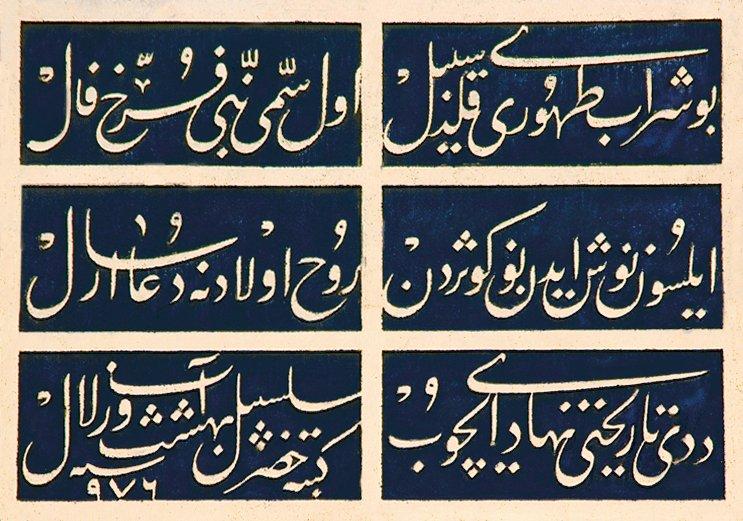 بو شراب طهوری قیلدی سبیل
اول سمی نبی فرخ فال
ایلسون نوش ایدن بو کوثردن
روح اولادنه دعا ارسال
ددی تاریخنی نهادی ایچوب
سلسبیل بهشت آب زلال
کتبه خضر
سنه ۹۷۶